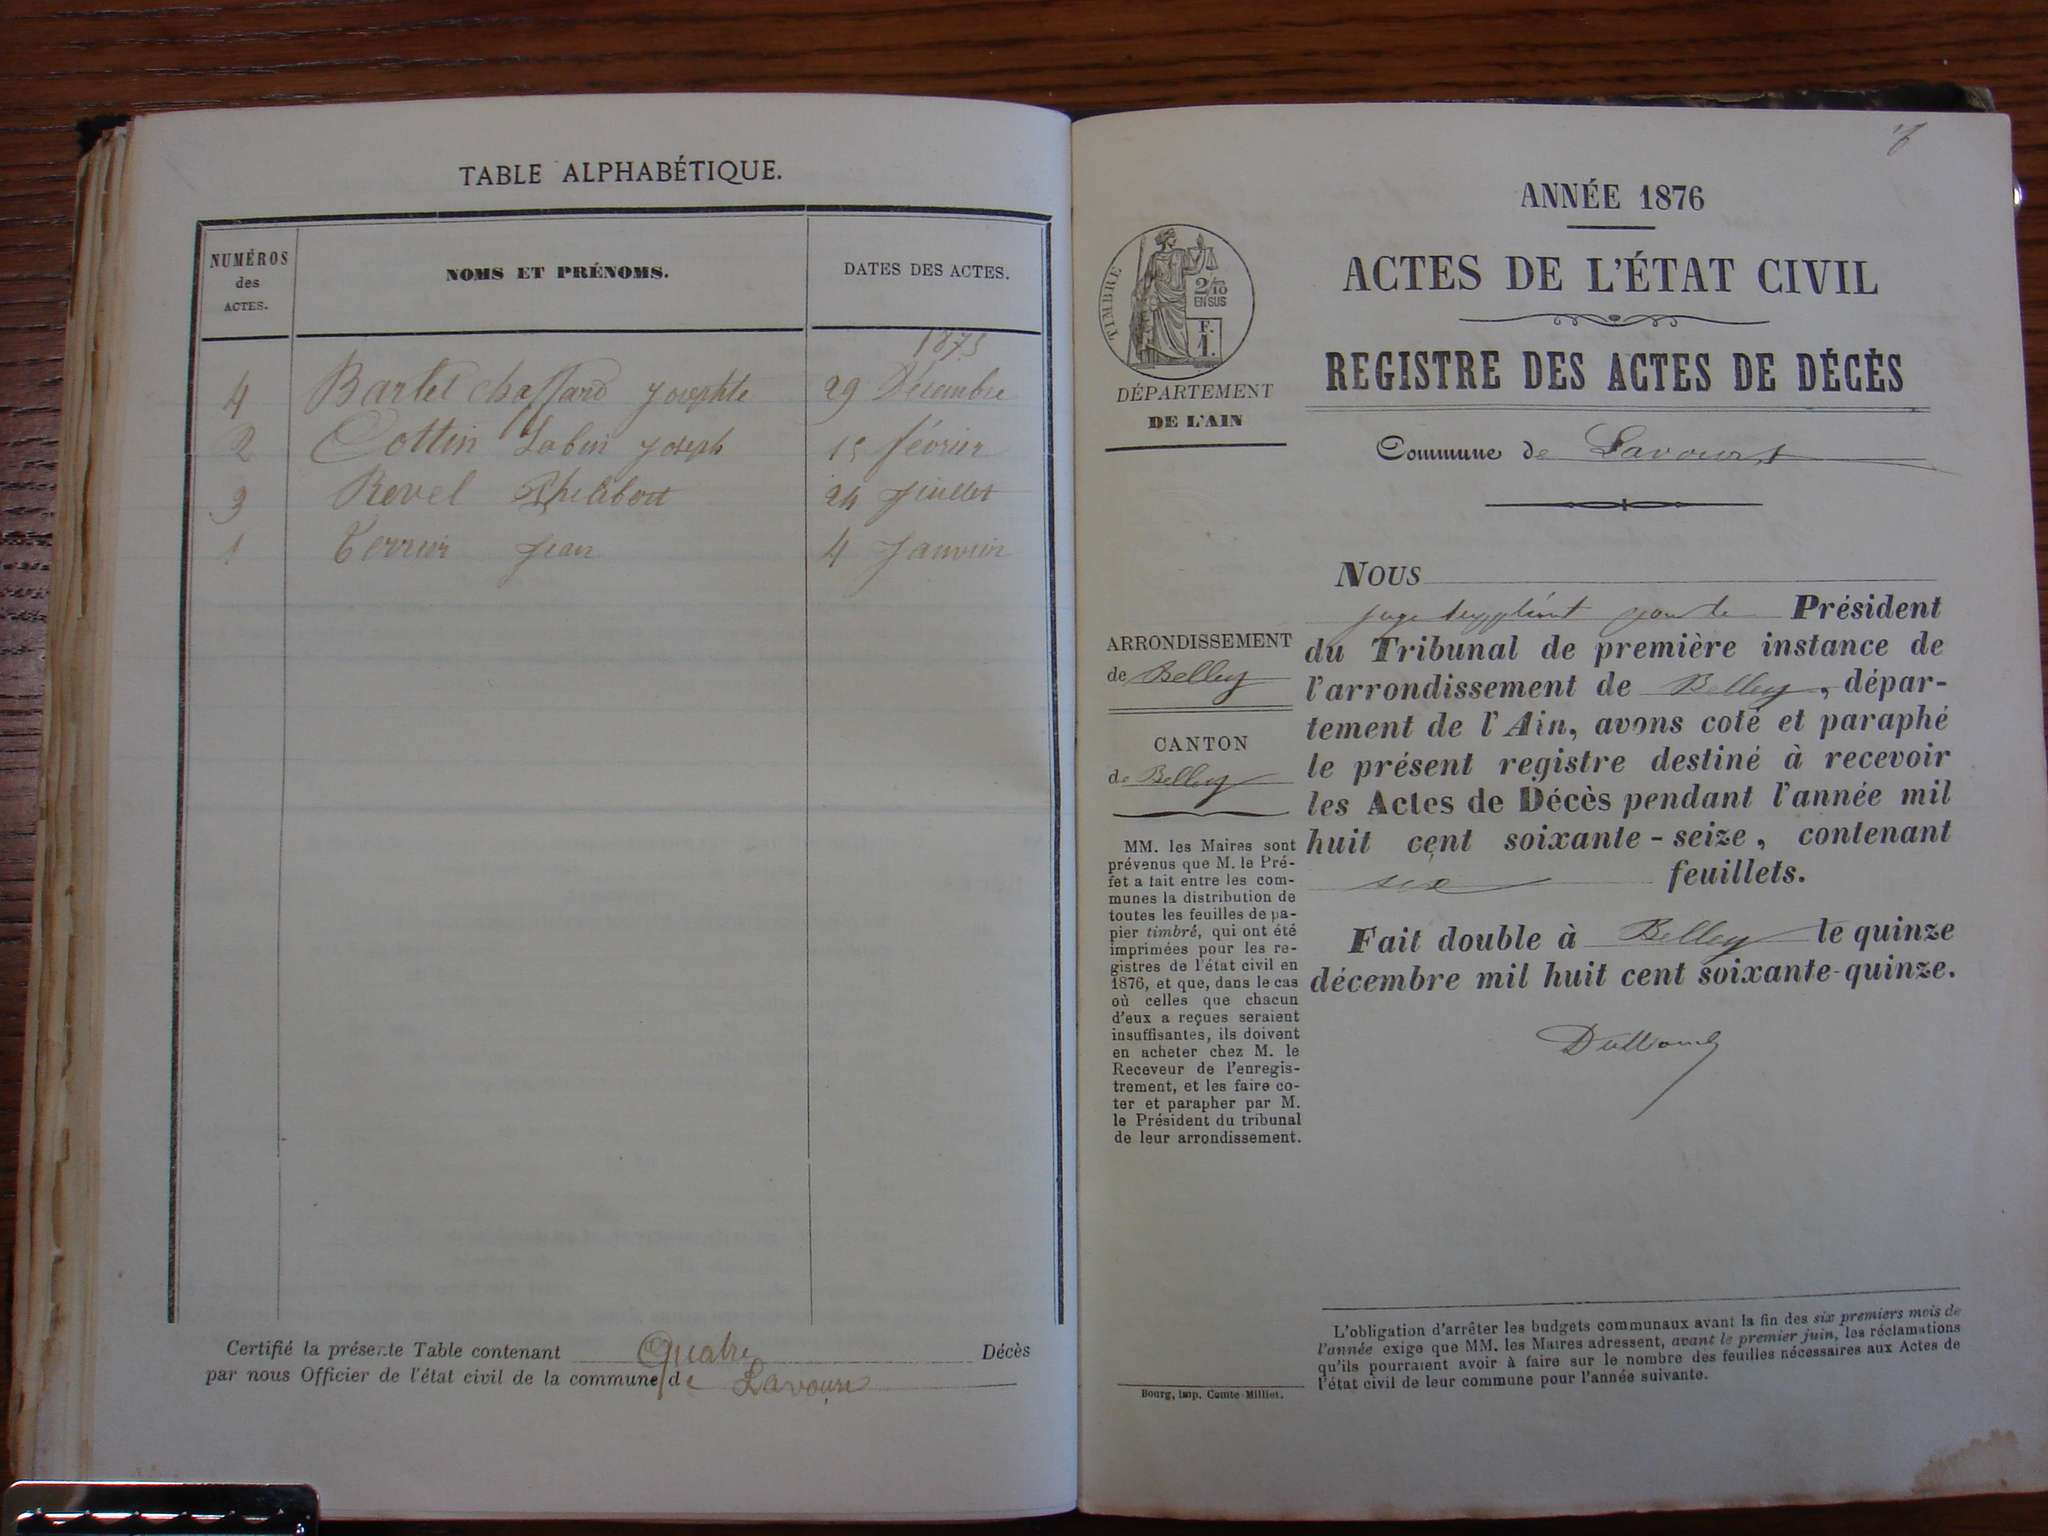 TABLE ALPHABÉTIQUE.
NUMÉROS
des
ACTES.
NOMS ET PRÉNOMS.
DATES DES ACTES.
1875
4 Bartel chaffard Josephte 29 Décembre
2 Cottin Sabin Joseph 15 février
3 Revel Philibert 24 Juillet
1 Terrier Jean 4 Janvier
Certifié la présente Table contenant Quatre Décès
par nous Officier de l'état civil de la commune de Lavours
ANNÉE 1876
ACTES DE L'ÉTAT CIVIL
REGISTRE DES ACTES DE DÉCÈS
Commune de Lavours
TIMBRE
2/10
EN SUS
F.
1.
DÉPARTEMENT
DE L'AIN
ARRONDISSEMENT
de Belley
CANTON
de Belley
MM. les Maires sont
prévenus que M. le Pré-
fet a fait entre les com-
munes la distribution de
toutes les feuilles de pa-
pier timbré, qui ont été
imprimées pour les re-
gistres de l'état civil en
1876, et que, dans le cas
où celles que chacun
d'eux a reçues seraient
insuffisantes, ils doivent
en acheter chez M. le
Receveur de l'enregis-
trement, et les faire co-
ter et parapher par M.
le Président du tribunal
de leur arrondissement.
Bourg, imp. Comte-Milliet.
NOUS
juge suppléant pour le Président
du Tribunal de première instance de
l'arrondissement de Belley, dépar-
tement de l'Ain, avons coté et paraphé
le présent registre destiné à recevoir
les Actes de Décès pendant l'année mil
huit cent soixante-seize, contenant
six feuillets.
Fait double à Belley le quinze
décembre mil huit cent soixante-quinze.
L'obligation d'arrêter les budgets communaux avant la fin des six premiers mois de
l'année exige que MM. les Maires adressent, avant le premier juin, les réclamations
qu'ils pourraient avoir à faire sur le nombre des feuilles nécessaires aux Actes de
l'état civil de leur commune pour l'année suivante.